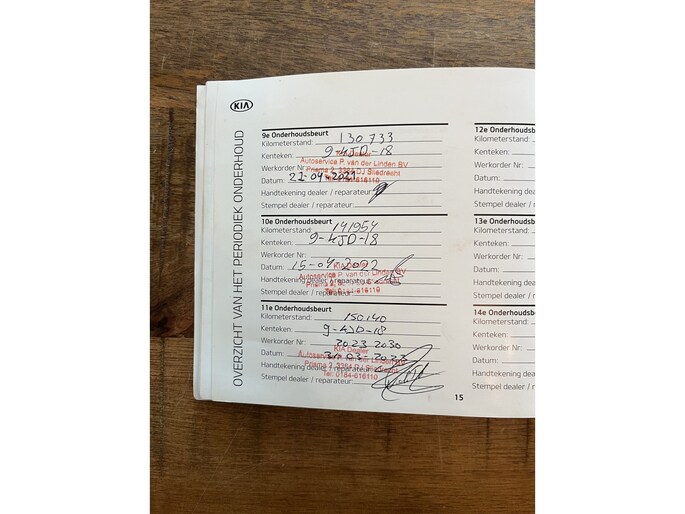 KIA
OVERZICHT VAN HET PERIODIEK ONDERHOUD
9e Onderhoudsbeurt
Kilometerstand: 130733
Kenteken: 9-KJD-18
Werkorder Nr:
KIA Dealer
Autoservice P. van der Linden BV
Prisma 3, 3364 DJ Sliedrecht
Tel. 0184-616110
Datum: 21-04-2021
Handtekening dealer / reparateur:
Stempel dealer / reparateur:
10e Onderhoudsbeurt
Kilometerstand: 141954
Kenteken: 9-KJD-18
Werkorder Nr:
KIA Dealer
Autoservice P. van der Linden BV
Datum: 15-04-2022
Handtekening dealer / reparateur:
Tel. 0184-616110
Stempel dealer / reparateur:
11e Onderhoudsbeurt
Kilometerstand: 150140
Kenteken: 9-KJD-18
Werkorder Nr: 2023 2030
KIA Dealer
Autoservice P. van der Linden BV
Datum: 31-03-2023
Prisma 3, 3364 DJ Sliedrecht
Handtekening dealer / reparateur:
Tel. 0184-616110
Stempel dealer / reparateur:
15
12e Onderhoudsb
Kilometerstand:
Kenteken:
Werkorder Nr:
Datum:
Handtekening dealer
Stempel dealer / rep
13e Onderhoudsb
Kilometerstand:
Kenteken:
Werkorder Nr:
Datum:
Handtekening dealer
Stempel dealer / rep
14e Onderhoudsb
Kilometerstand:
Kenteken:
Werkorder Nr:
Datum:
Handtekening dealer
Stempel dealer / rep